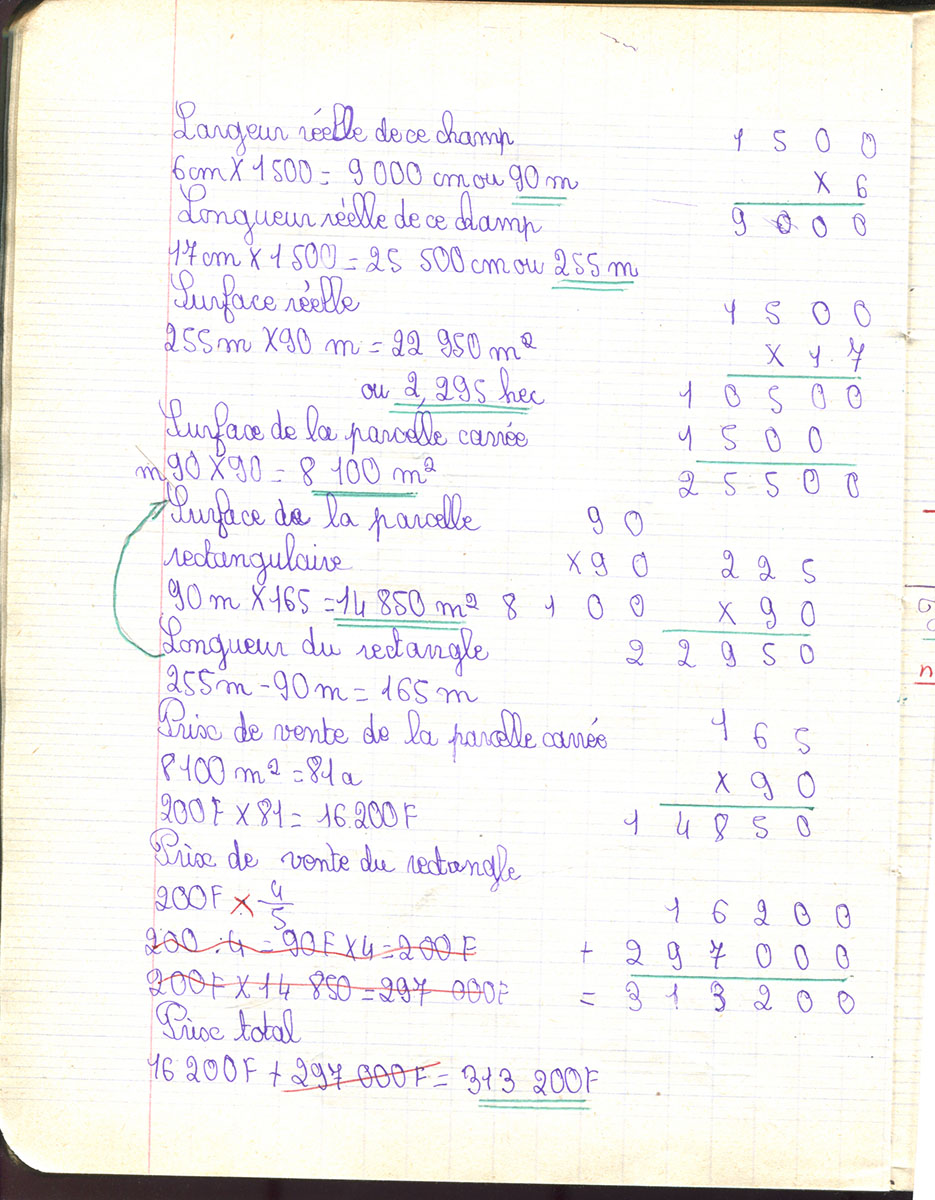 Largeur réelle de ce champ
6cm X 1500 = 9 000 cm ou 90 m
Longueur réelle de ce champ
17cm X 1500 = 25 500 cm ou 255 m
Surface réelle
255m X 90 m = 22 950 m²
ou 2,295 hec
Surface de la parcelle carrée
m 90 X 90 = 8 100 m²
Surface de la parcelle
rectangulaire
90m X 165 = 14 850 m²
Longueur du rectangle
255m - 90m = 165 m
Prix de vente de la parcelle carrée
8100 m² = 81a
200F X 81 = 16.200F
Prix de vente du rectangle
200F X 4/5
200 : 4 = 90F X 4 = 200 F
200F X 14 850 = 297 000F
Prix total
16 200F + 297 000F = 313 200F
1 5 0 0
X 6
9 0 0 0
1 5 0 0
X 1.7
1 0 5 0 0
1 5 0 0
2 5 5 0 0
9 0
X 9 0
8 1 0 0
2 2 5
X 9 0
2 2 9 5 0
1 6 5
X 9 0
1 4 8 5 0
1 6 2 0 0
+ 2 9 7 0 0 0
= 3 1 3 2 0 0